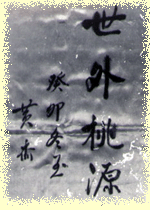 世外桃源
癸卯冬至
黄